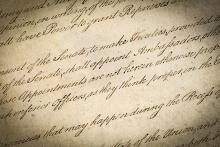 shall have Power to grant Reprieves
sent of the Senate, to make Treaties, provided
of the Senate, shall appoint Ambassadors, other
whose Appointments are not herein otherwise prov
such inferior Officers, as they think proper, in the
ancies that may happen during the Recess
of the Union, and